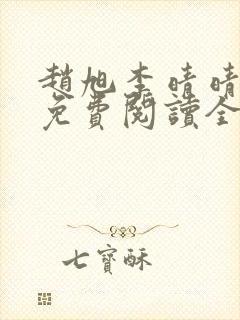 趙旭李晴晴
免費閱讀全
七寶酥